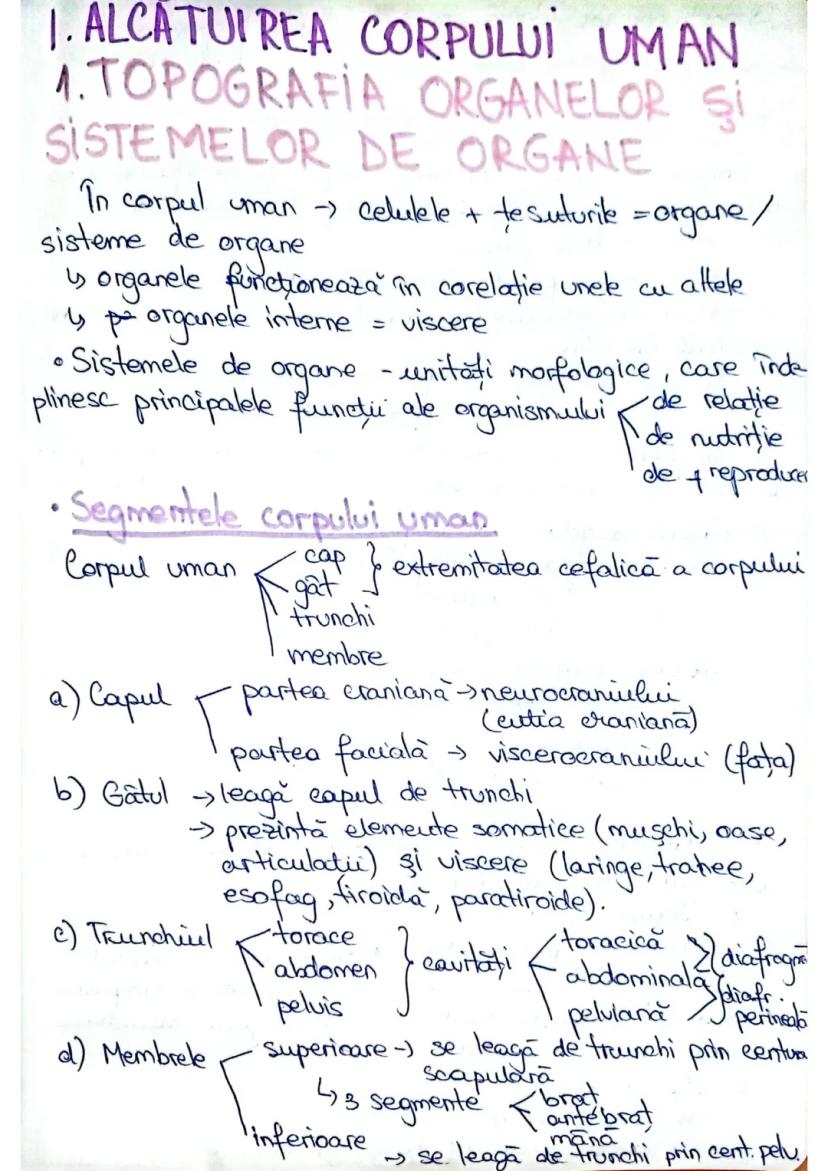 I. ALCĂTUIREA CORPULUI UMAN
1. TOPOGRAFIA ORGANELOR ȘI
SISTEMELOR DE ORGANE
În corpul uman → celulele + țesuturile = organe /
sisteme de organe
↳ organele funcționează în corelație unele cu altele
↳ organele interne = viscere
• Sistemele de organe - unități morfologice, care înde-
plinesc principalele funcții ale organismului de relație
de nutriție
de reproducer
• Segmentele corpului uman
Corpul uman cap } extremitatea cefalică a corpului
gât
trunchi
membre
a) Capul partea craniană → neurocraniului
(cutia craniană)
partea facială → viscerocraniului (fața)
b) Gâtul → leagă capul de trunchi
→ prezintă elemente somatice (mușchi, oase,
articulații) și viscere (laringe, trahee,
esofag, tiroidă, paratiroide).
c) Trunchiul torace } cavități toracică } diafragmă
abdomen abdominală } diafr.
pelvis pelviană perineală
d) Membrele superioare → se leagă de trunchi prin centura
scapulară
↳ 3 segmente braț
antebraț
mână
inferioare → se leagă de trunchi prin cent. pelv.